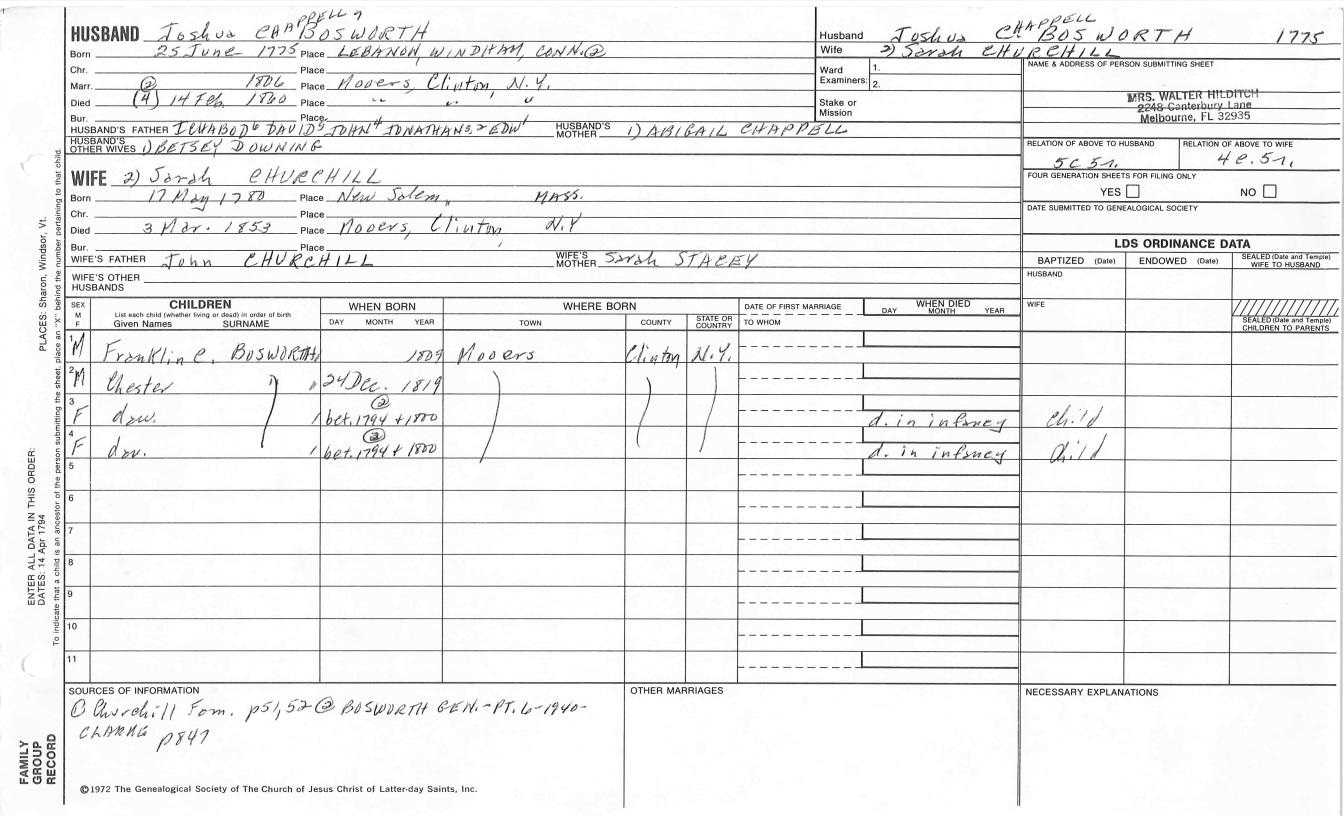 HUSBAND Joshua CHAPPELL 7 BOSWORTH
Born 25 June 1775 Place LEBANON, WINDHAM, CONN. ②
Chr. Place
Marr. ② 1806 Place Mooers, Clinton, N.Y.
Died (4) 14 Feb. 1860 Place " " "
Bur. Place
HUSBAND'S FATHER ICHABOD 6 DAVID 5 JOHN 4 JONATHAN 3, 2 EDW 1 HUSBAND'S MOTHER 1) ABIGAIL CHAPPELL
HUSBAND'S OTHER WIVES 1) BETSEY DOWNING
WIFE 2) Sarah CHURCHILL
Born 17 May 1780 Place New Salem, MASS.
Chr. Place
Died 3 Mar. 1853 Place Mooers, Clinton, N.Y
Bur. Place
WIFE'S FATHER John CHURCHILL WIFE'S MOTHER Sarah STACEY
WIFE'S OTHER HUSBANDS
Husband Joshua CHAPPELL BOSWORTH 1775
Wife 2) Sarah CHURCHILL
Ward Examiners: 1. 2.
Stake or Mission
NAME & ADDRESS OF PERSON SUBMITTING SHEET
MRS. WALTER HILDITCH
2248 Canterbury Lane
Melbourne, FL 32935
RELATION OF ABOVE TO HUSBAND RELATION OF ABOVE TO WIFE
5C 5r. 4C. 5r.
FOUR GENERATION SHEETS FOR FILING ONLY
YES NO
DATE SUBMITTED TO GENEALOGICAL SOCIETY
LDS ORDINANCE DATA
BAPTIZED (Date) ENDOWED (Date) SEALED (Date and Temple) WIFE TO HUSBAND
HUSBAND
WIFE
SEALED (Date and Temple) CHILDREN TO PARENTS
SEX M F CHILDREN WHEN BORN WHERE BORN DATE OF FIRST MARRIAGE WHEN DIED
List each child (whether living or dead) in order of birth
Given Names SURNAME DAY MONTH YEAR TOWN COUNTY STATE OR COUNTRY TO WHOM DAY MONTH YEAR
1 M Franklin C. BOSWORTH 1809 Mooers Clinton N.Y.
2 M Chester " 24 Dec. 1819
3 F dau. ② bet. 1794 + 1800 d. in infancy Child
4 F dau. ② bet. 1794 + 1800 d. in infancy Child
5
6
7
8
9
10
11
SOURCES OF INFORMATION
① Churchill Fam. p51, 52 ② BOSWORTH GEN.-PT. 6-1940-
CLARKE p847
OTHER MARRIAGES
NECESSARY EXPLANATIONS
©1972 The Genealogical Society of The Church of Jesus Christ of Latter-day Saints, Inc.
ENTER ALL DATA IN THIS ORDER:
DATES: 14 Apr 1794 PLACES: Sharon, Windsor, Vt.
To indicate that a child is an ancestor of the person submitting the sheet, place an "X" behind the number pertaining to that child.
FAMILY
GROUP
RECORD